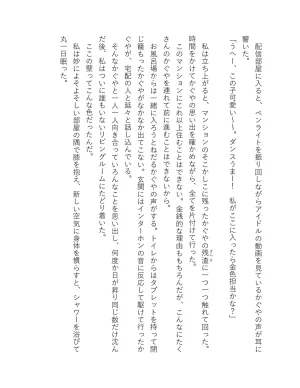 配信部屋に入ると、ペンライトを振り回しながらアイドルの動画を見ているかぐやの声が耳に
響いた。
「うへー、この子可愛い～！　ダンスうまー！　私がここに入ったら金色担当かな？」
　私は立ち上がると、マンションのそこかしこに残ったかぐやの残滓に一つ一つ触れて回った。
時間をかけてかぐやの思い出を確かめながら、全てを片付けて行った。
　このマンションにこれ以上住むことはできない。金銭的な理由ももちろんだが、こんなにたく
さんのかぐやを連れて前に進むことはできないから。
　お風呂場からは一緒に入ろうとねだるかぐやの声がする。トイレからはタブレットを持って閉
じ籠もったかぐやがなかなか出てこない。玄関にはインターホンの音に反応して駆けて行ったか
ぐやが、宅配の人と延々と話し込んでいる。
　そんなかぐやと一人一人向き合っていろんなことを思い出し、何度か日が昇り同じ数だけ沈ん
だ後、私はついに誰もいないリビングルームにたどり着いた。
　ここの壁ってこんな色だったんだ。
　私は妙によそよそしい部屋の隅で膝を抱え、新しい空気に身体を慣らすと、シャワーを浴びて
丸一日眠った。